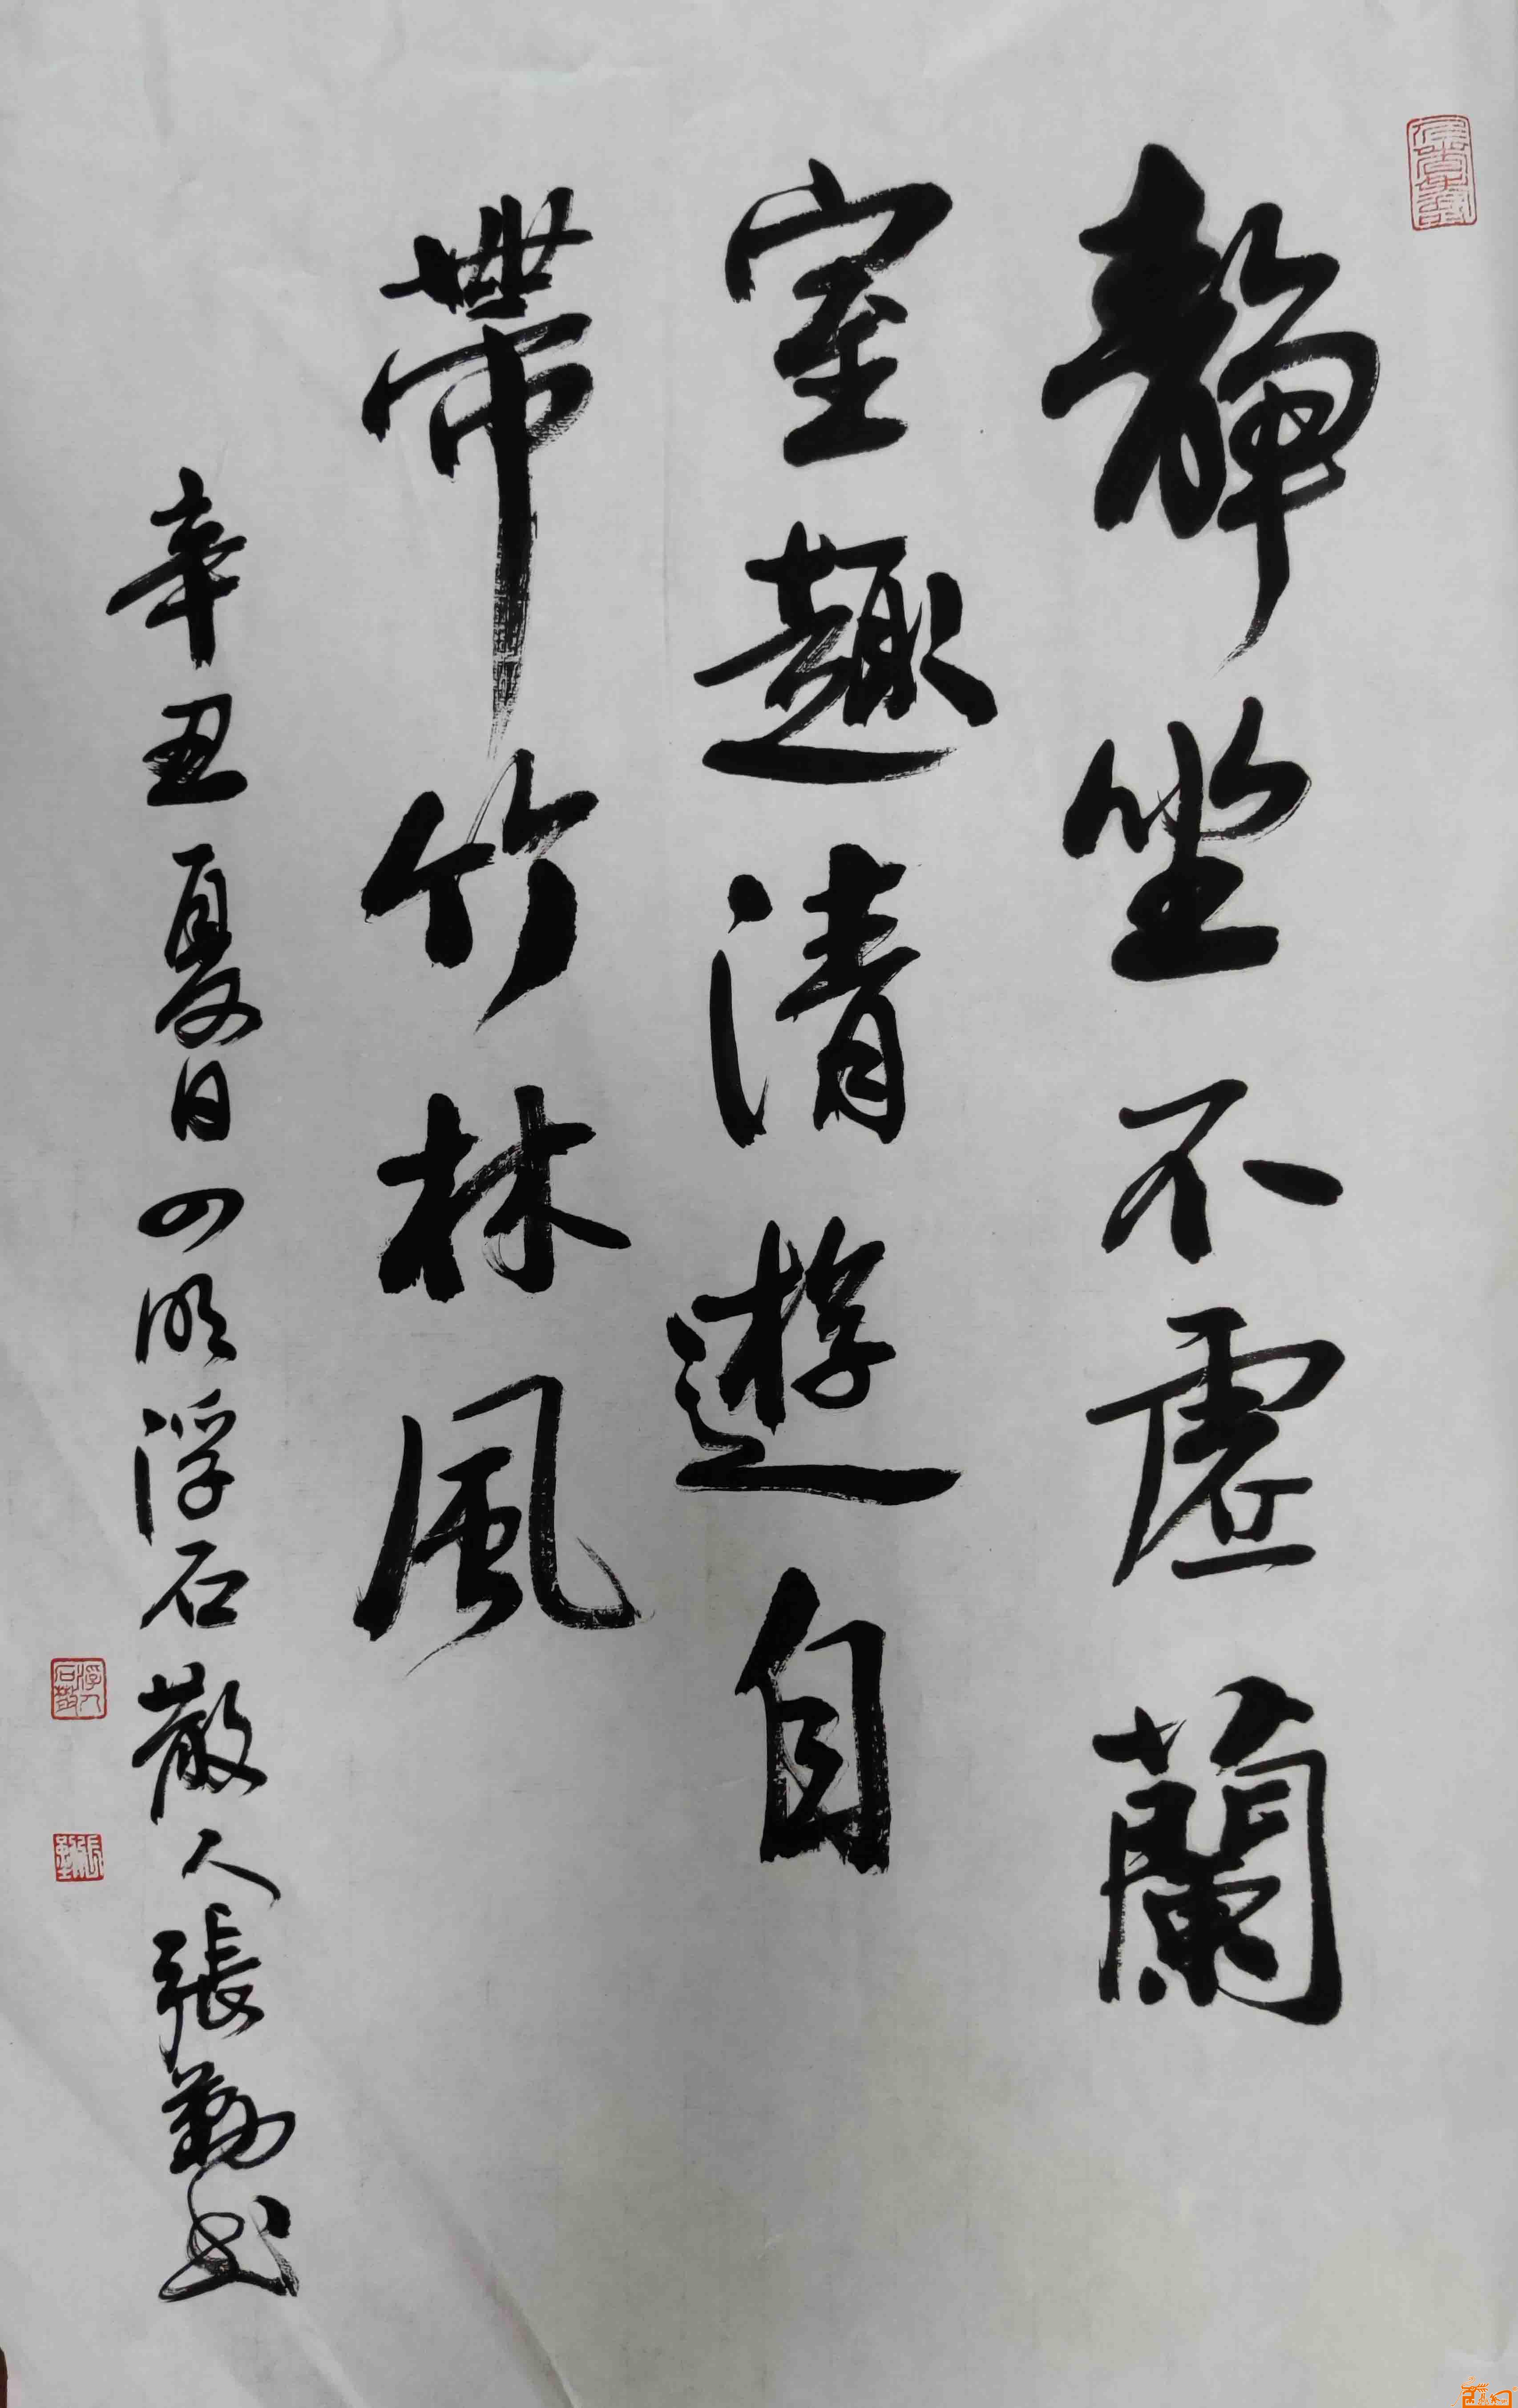 靜坐不虛蘭
室趣清遊自
帶竹林風
辛丑夏日四明浮石散人張勤書
浮石散人
張勤